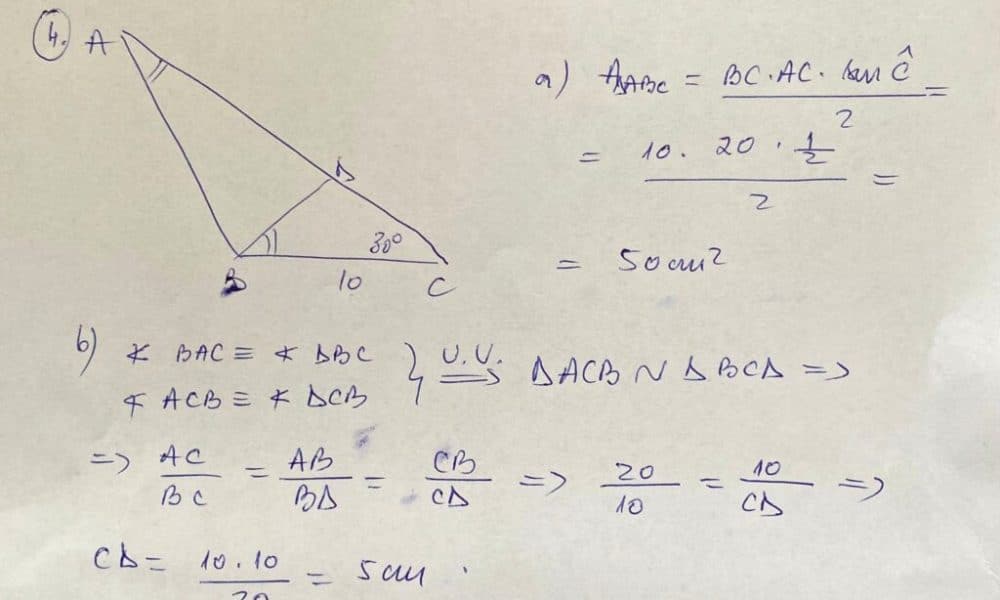 4.
A
D
B
C
30°
10
a) A△ABC = BC·AC·sin Ĉ / 2 =
= 10 · 20 · 1/2 / 2 =
= 50 cm²
b) ∢ BAC ≡ ∢ DBC
∢ ACB ≡ ∢ DCB
} U.U. => ΔACB ~ ΔBCD =>
=> AC/BC = AB/BD = CB/CD => 20/10 = 10/CD =>
CD = 10·10/20 = 5cm .